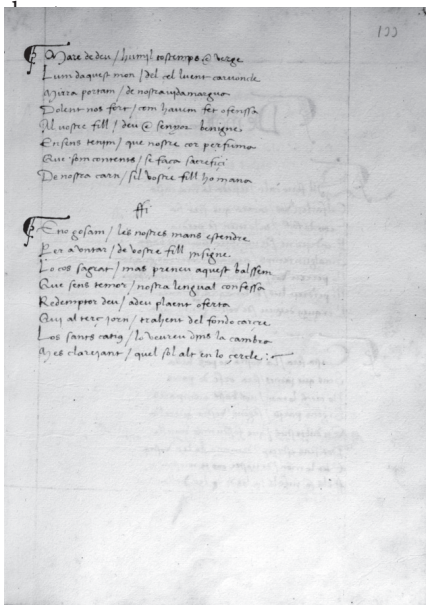 1
133
Mare de deu / humil tostemps @ verge
Lum daquest mon / del cel luent carvoncle
Mirra portam / de nostra vida margua
Dolent nos fort / com havem fet ofenssa
Al vostre fill / deu @ senyor benigne
Ensens tenim / que nostre cor perfuma
Qui som contents / se faça sacrefiçi
De nostra carn / sil vostre fill ho mana
ffi
E no gosam / les nostres mans estendre
Per a untar / de vostre fill insigne
Lo cos sagrat / mas preneu aquest balssem
Que sens temor / nostra lengual confessa
Redemptor deu / a deu plaent oferta
Qui al terç jorn / trahent del fondo carcre
Los sants catius / lo veureu dins la cambra
Mes clarejant / quel sol alt en lo çercle :~